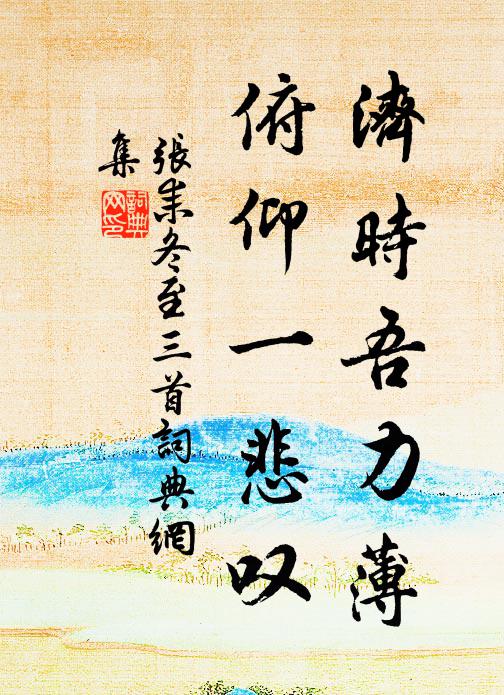 濟時吾力薄
俯仰一悲叹
張耒冬至三首詞典網
集
詞典
网印